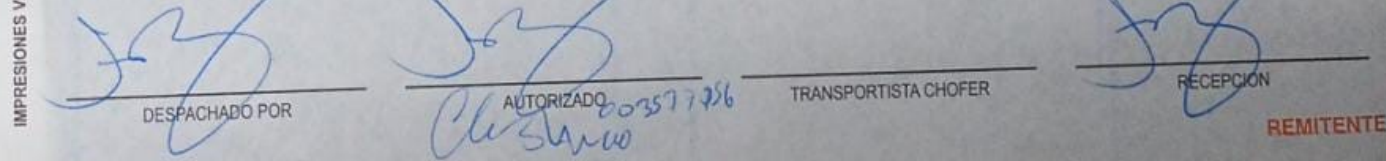 IMPRESIONES V
DESPACHADO POR
AUTORIZADO
TRANSPORTISTA CHOFER
RECEPCIÓN
REMITENTE